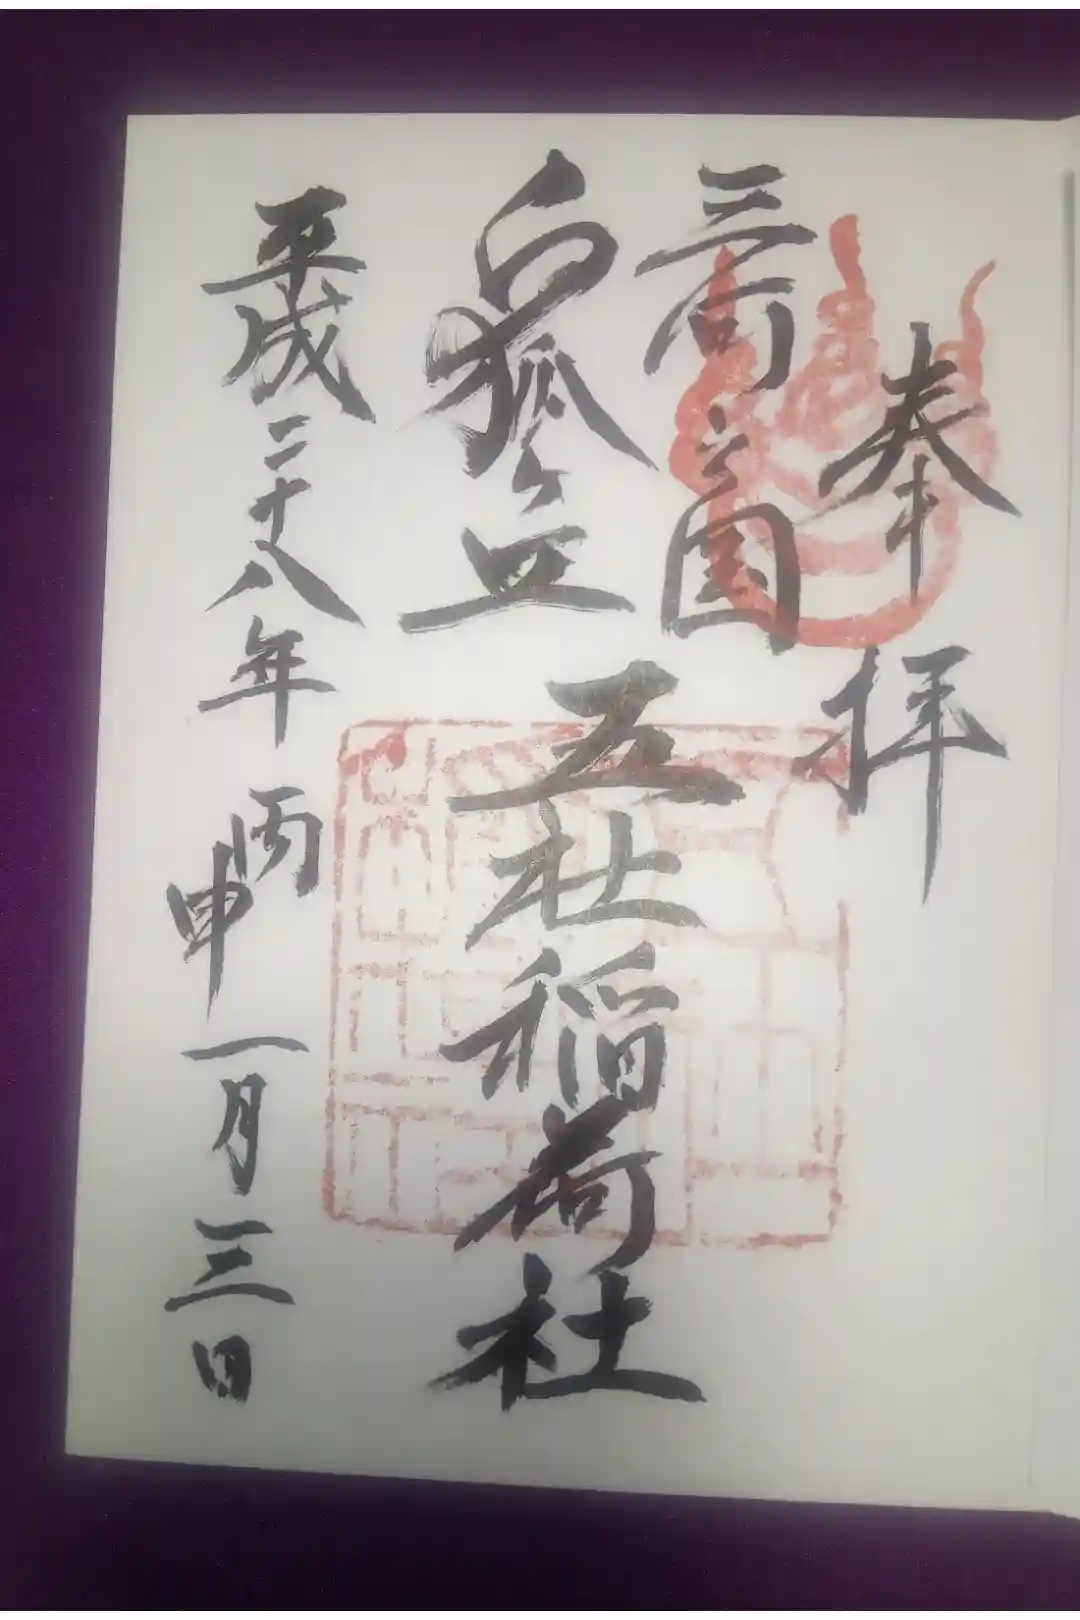 奉拝
之国
白狐ヶ丘 五社稲荷社
平成二十八年 丙申 一月三日